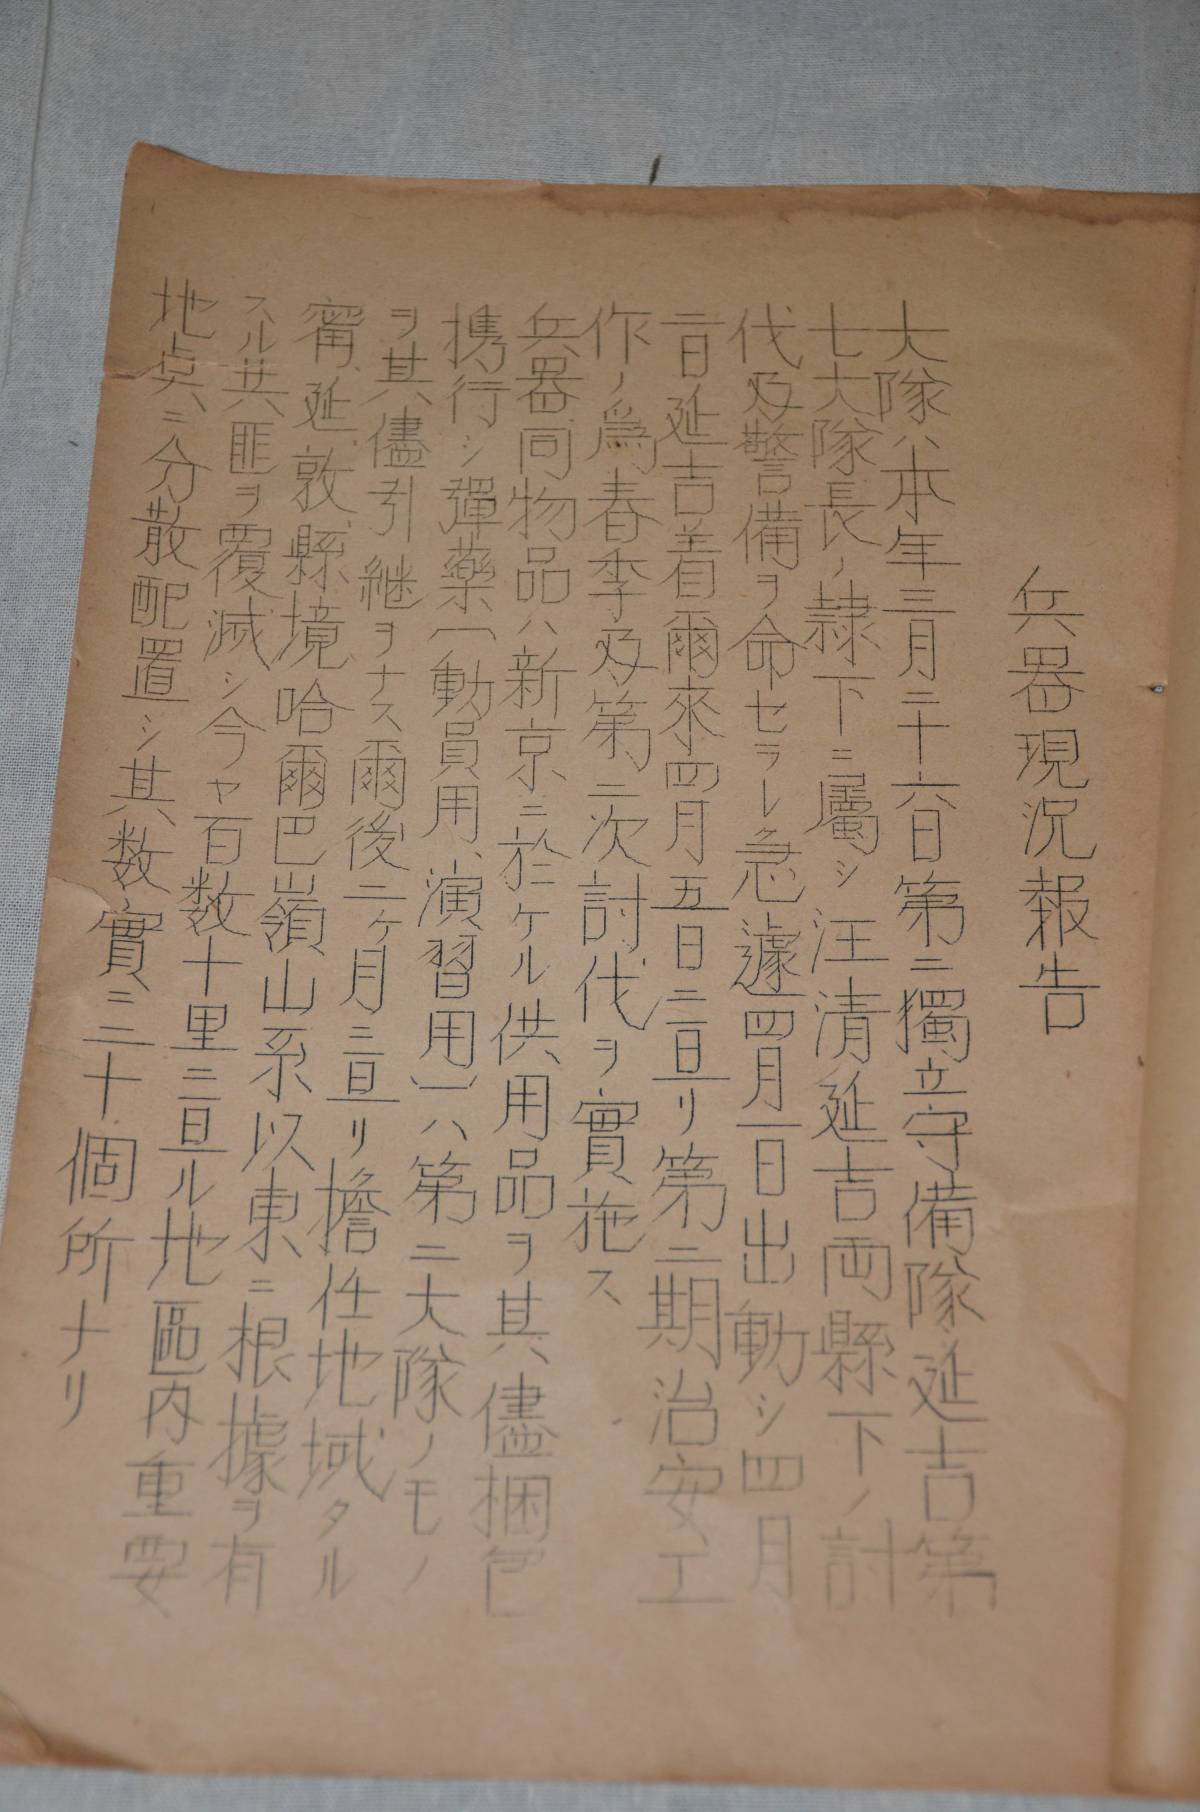 兵器現況報告
大隊ハ本年三月二十六日第二獨立守備隊延吉第
七大隊長ノ隷下ニ屬シ汪清延吉両縣下ノ討
伐及警備ヲ命セラレ急遽四月一日出動シ四月
二日延吉着爾來四月五日ニ亘リ第二期治安工
作ノ為春季及第二次討伐ヲ實施ス
兵器同物品ハ新京ニ於ケル供用品ヲ其儘梱包
携行シ彈藥(動員用、演習用)ハ第二大隊ノモノ
ヲ其儘引継ヲナス爾後二ヶ月ニ亘リ擔任地域タル
甯、延、敦、縣境哈爾巴嶺山系以東ニ根據ヲ有
スル共匪ヲ覆滅シ今ヤ百数十里ニ亘ル地區内重要
地点ニ分散配置シ其数實ニ三十個所ナリ